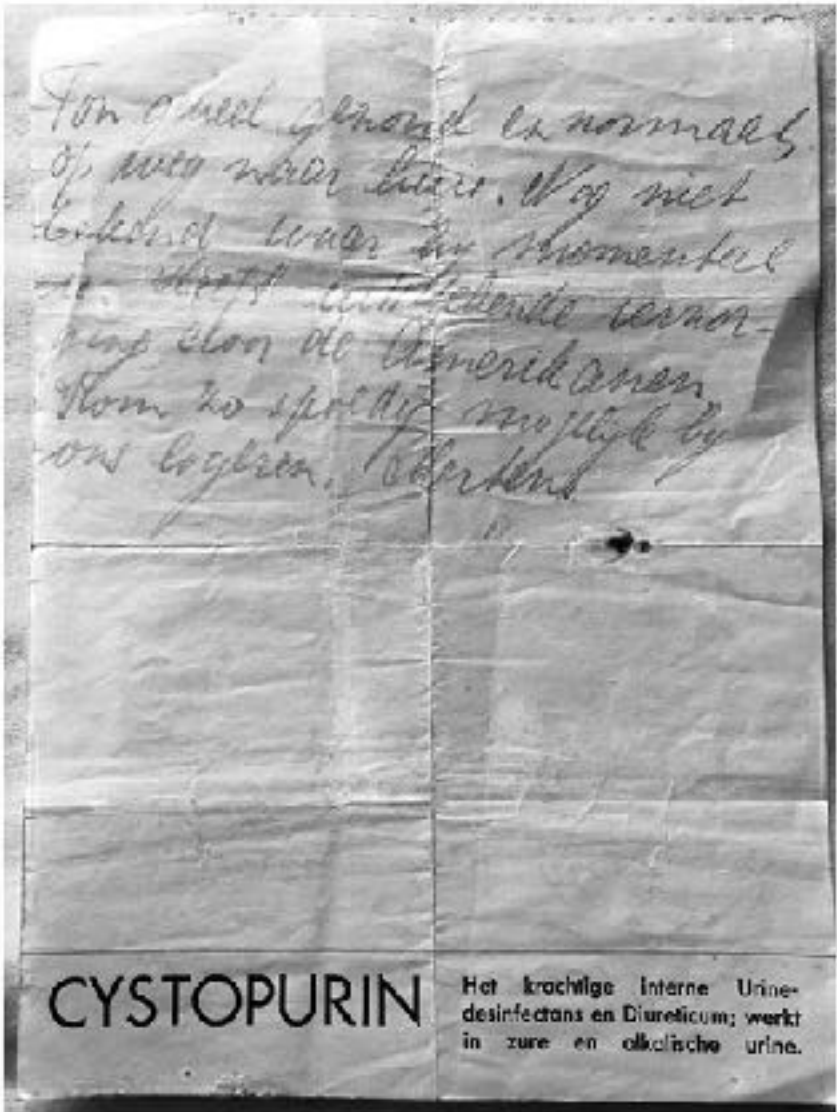 Ton geheel gezond en normaal
op weg naar huis. Nog niet
bekend waar hij momenteel
is. Heeft uitstekende verzor-
ging door de Amerikanen.
Kom zo spoedig mogelijk bij
ons logeren. Mertens
CYSTOPURIN
Het krachtige interne Urine-
desinfectans en Diureticum; werkt
in zure en alkalische urine.